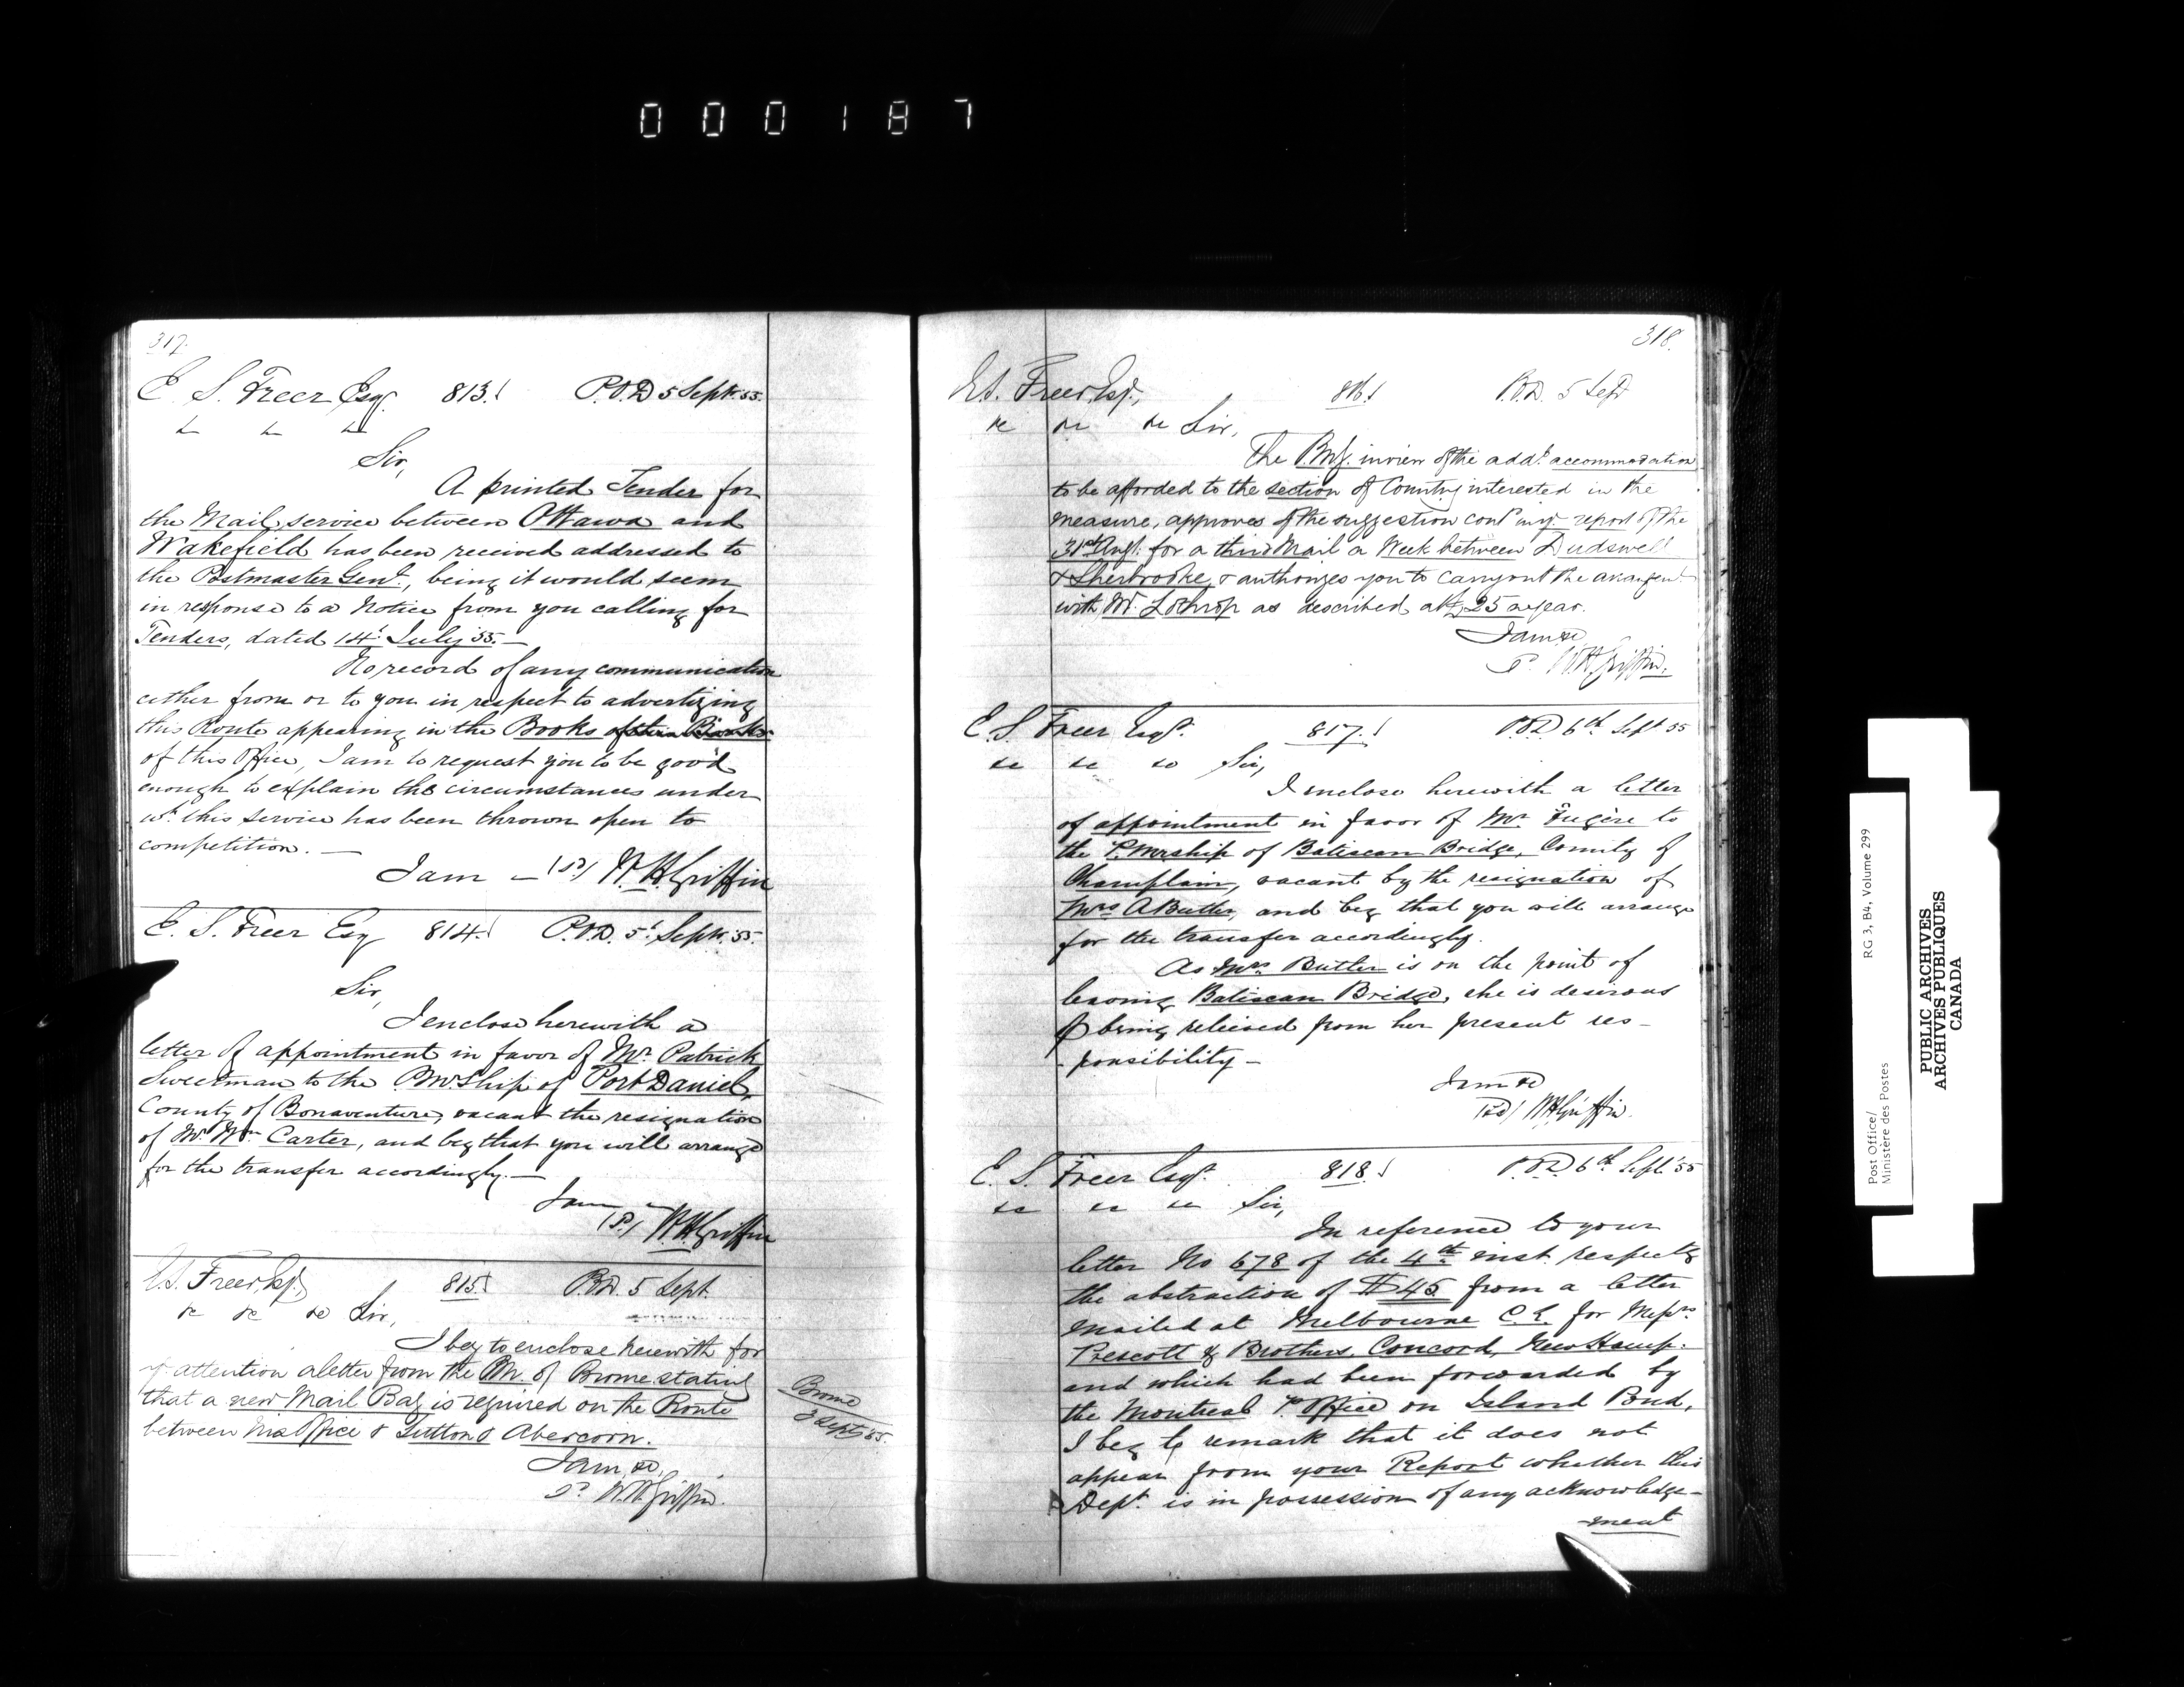 000187
317.
E. S. Freer Esq. 813. P.O.D 5 Sept. 55.
Sir,
A printed Tender for
the Mail service between Ottawa and
Wakefield has been received addressed to
the Postmaster Genl., being it would seem
in response to a Notice from you calling for
Tenders, dated 14t July 55. —
No record of any communication
either from or to you in respect to advertizing
this Route appearing in the Books
of this Office, I am to request you to be good
enough to explain the circumstances under
wh. this service has been thrown open to
competition. —
I am — (sd) W. H. Griffin
E. S. Freer Esq 814. P.O.D. 5t Sept. 55.
Sir,
I enclose herewith a
letter of appointment in favor of Mr. Patrick
Sweetman to the P.M.Ship of Port Daniel,
County of Bonaventure, vacant the resignation
of Mr. Wm. Carter, and beg that you will arrange
for the transfer accordingly. —
I am —
(sd) W. H. Griffin
E.S. Freer, Esq., 815. P.O.D. 5 Sept.
&c &c &c Sir,
I beg to enclose herewith for
yr attention a letter from the P.M. of Brome stating
that a new Mail Bag is required on the Route
between his Office & Sutton & Abercorn.
I am, &c,
sd W. H. Griffin.
Brome
3 Sept 55.
318.
E.S. Freer, Esq., 816. P.O.D. 5 Sept
&c &c &c Sir,
The P.M.G. in view of the addl. accommodation
to be afforded to the section of Country interested in the
measure, approves of the suggestion contd in yr. report of the
31st Augt. for a third Mail a Week between Dudswell
& Sherbrooke, & authorizes you to carry out the arrangent.
with Mr. Lothrop as described at £25 a year.
I am &c
sd W. H. Griffin.
E. S. Freer Esqr. 817. P.O.D. 6th Sept 55
&c &c &c Sir,
I enclose herewith a letter
of appointment in favor of Mr. Fugère to
the P.Mrship of Batiscan Bridge, County of
Champlain, vacant by the resignation of
Mrs A Butler, and beg that you will arrange
for the transfer accordingly.
As Mrs. Butler is on the point of
leaving Batiscan Bridge, she is desirous
of being relieved from her present res-
-ponsibility —
I am &c
(sd) W H Griffin.
E. S. Freer Esqr. 818. P.O.D 6th Sept. '55
&c &c &c Sir,
In reference to your
letter No 678 of the 4th inst. respectg
the abstraction of $45 from a letter
mailed at Melbourne C.E. for Messrs.
Prescott & Brothers, Concord, New Hamp:
and which had been forwarded by
the Montreal P. Office on Island Pond,
I beg to remark that it does not
appear from your Report whether this
Dept. is in possession of any acknowledge-
-ment
Post Office/ RG 3, B4, Volume 299
Ministère des Postes
PUBLIC ARCHIVES
ARCHIVES PUBLIQUES
CANADA